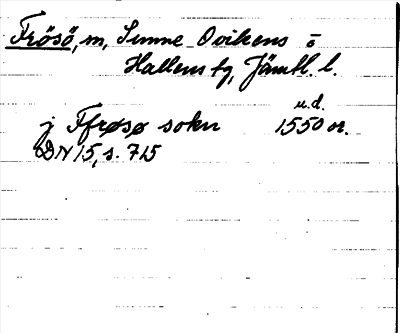 Frösö, m, Sunne Ovikens o
Hallens tg, Jämtl. l.
u.d.
j Ffrøsø sokn 1550 or.
DN 15, s. 715